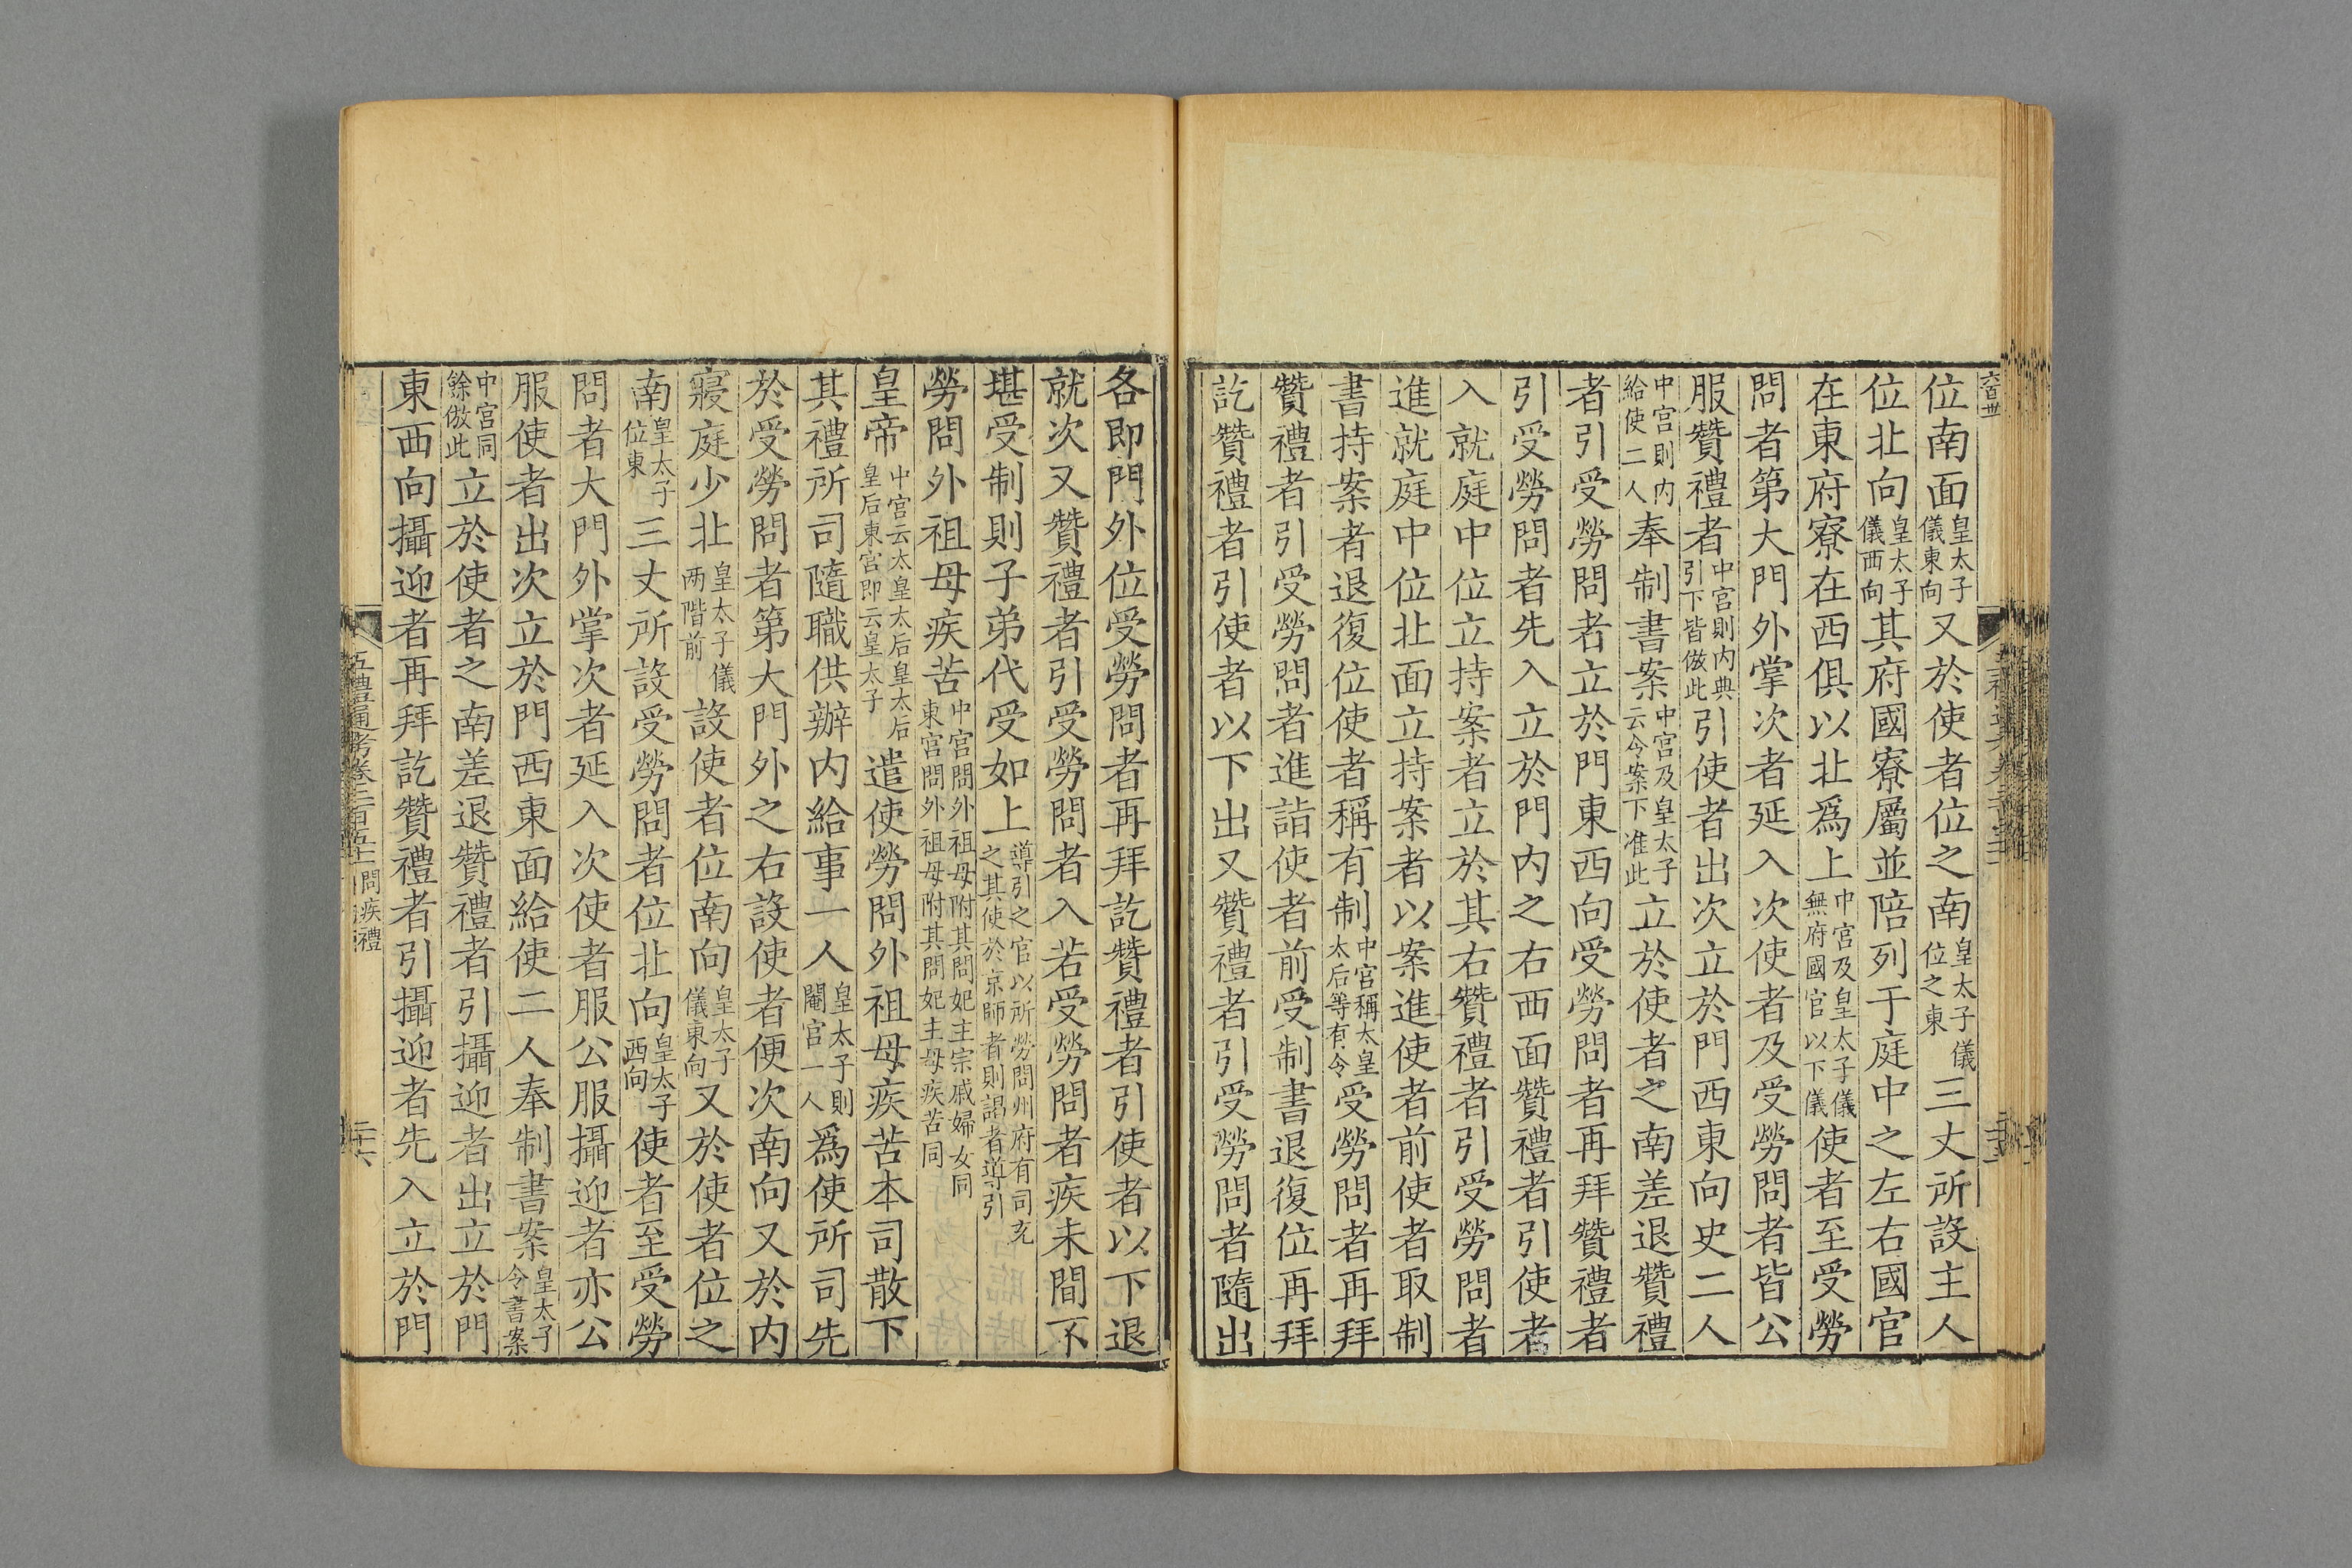 位南面皇太子儀東向又於使者位之南皇太子儀位之東三丈所設主人
位北向皇太子儀西向其府國寮屬並陪列于庭中之左右國官
在東府寮在西俱以北爲上中宮及皇太子儀無府國官以下儀使者至受勞
問者第大門外掌次者延入次使者及受勞問者皆公
服贊禮者中宮則内典引下皆倣此引使者出次立於門西東向史二人
中宮則内給使二人奉制書案中宮及皇太子云令案下准此立於使者之南差退贊禮
者引受勞問者立於門東西向受勞問者再拜贊禮者
引受勞問者先入立於門内之右西面贊禮者引使者
入就庭中位立持案者立於其右贊禮者引受勞問者
進就庭中位北面立持案者以案進使者前使者取制
書持案者退復位使者稱有制中宮稱太皇太后等有令受勞問者再拜
贊禮者引受勞問者進詣使者前受制書退復位再拜
訖贊禮者引使者以下出又贊禮者引受勞問者隨出
各即門外位受勞問者再拜訖贊禮者引使者以下退
就次又贊禮者引受勞問者入若受勞問者疾未間不
堪受制則子弟代受如上導引之官以所勞問州府有司充之其使於京師者則謁者導引
勞問外祖母疾苦中宮問外祖母附其問妃主宗戚婦女同東宮問外祖母附其問妃主母疾苦同
皇帝中宮云太皇太后皇太后皇后東宮即云皇太子遣使勞問外祖母疾苦本司散下
其禮所司隨職供辦内給事一人皇太子則閹官一人爲使所司先
於受勞問者第大門外之右設使者便次南向又於内
寢庭少北皇太子儀兩階前設使者位南向皇太子儀東向又於使者位之
南皇太子位東三丈所設受勞問者位北向皇太子西向使者至受勞
問者大門外掌次者延入次使者服公服攝迎者亦公
服使者出次立於門西東面給使二人奉制書案皇太子令書案
中宮同餘倣此立於使者之南差退贊禮者引攝迎者出立於門
東西向攝迎者再拜訖贊禮者引攝迎者先入立於門
五禮通考卷二百五十一問疾禮
二十六